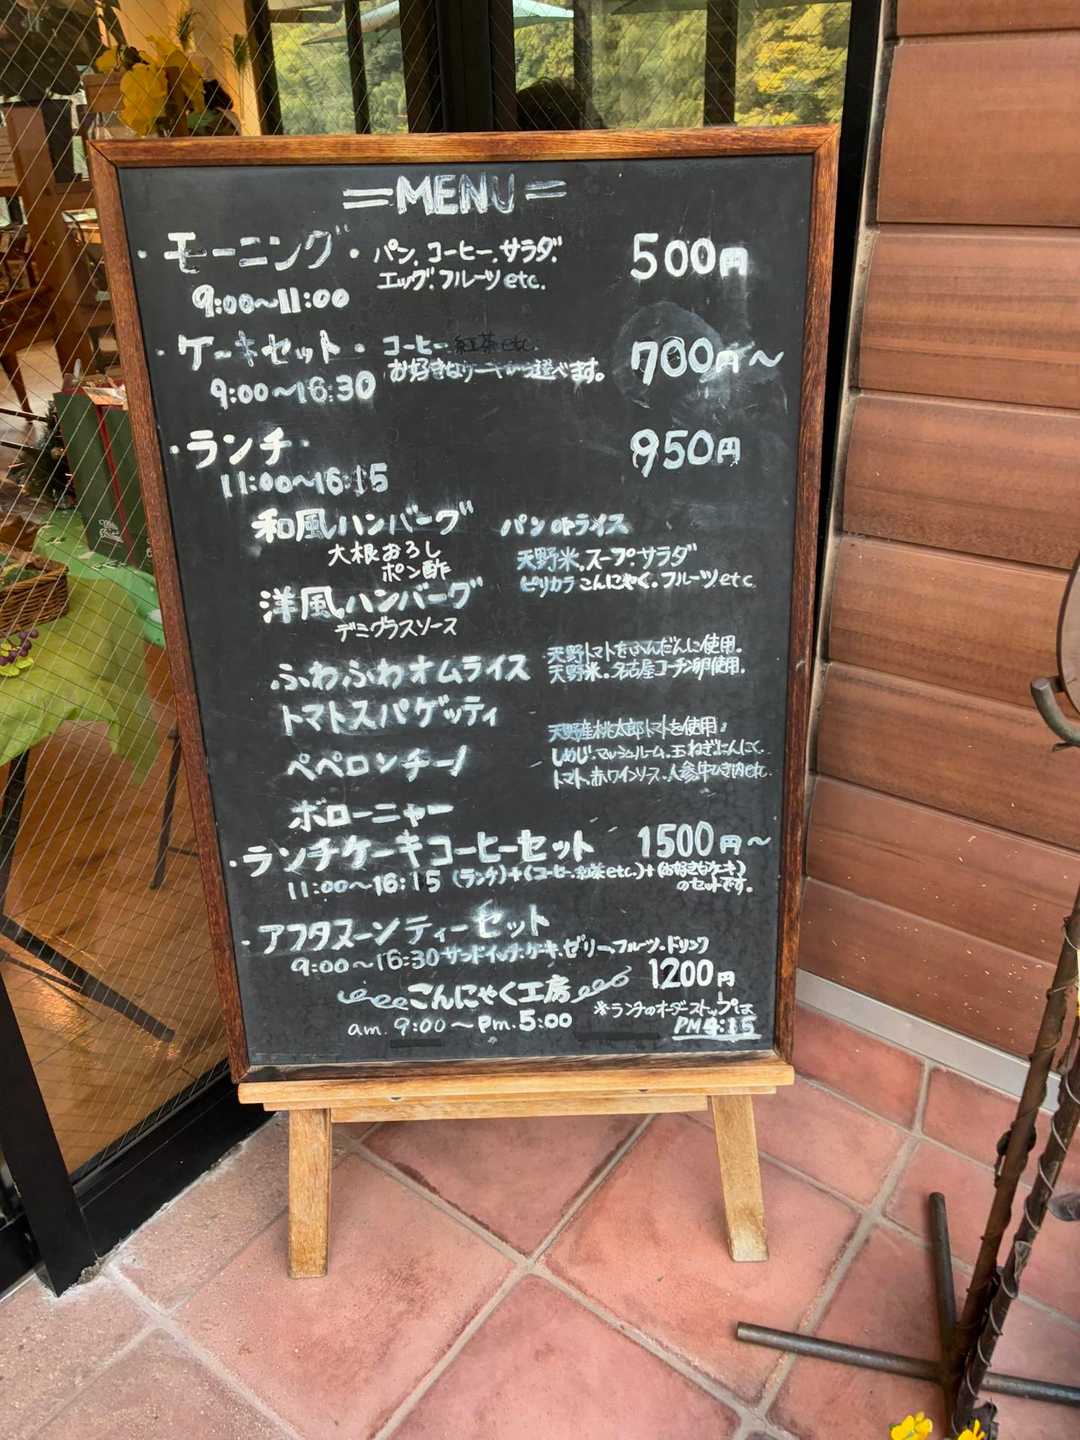 =MENU=
・モーニング・ パン.コーヒー.サラダ. 500円
エッグ.フルーツetc.
9:00〜11:00
・ケーキセット・ コーヒー 紅茶etc. 700円〜
お好きなケーキから選べます。
9:00〜16:30
・ランチ・ 950円
11:00〜16:15
和風ハンバーグ パンorライス
大根おろし
ポン酢
天野米.スープ.サラダ
ピリカラこんにゃく.フルーツetc
洋風ハンバーグ
デミグラスソース
ふわふわオムライス 天野トマトをふんだんに使用.
天野米.名古屋コーチン卵使用.
トマトスパゲッティ 天野産桃太郎トマトを使用.
ペペロンチーノ しめじ.マッシュルーム.玉ねぎにんにく.
トマト.赤ワインソース.人参牛ひき肉etc.
ボローニャー
・ランチケーキコーヒーセット 1500円〜
11:00〜16:15 (ランチ)+(コーヒー.紅茶etc.)+(お好きなケーキ)
のセットです。
・アフタヌーンティーセット
9:00〜16:30 サンドイッチ.ケーキ.ゼリー.フルーツ.ドリンク
1200円
こんにゃく工房
※ランチのオーダーストップは
am. 9:00〜Pm.5:00 PM4:15